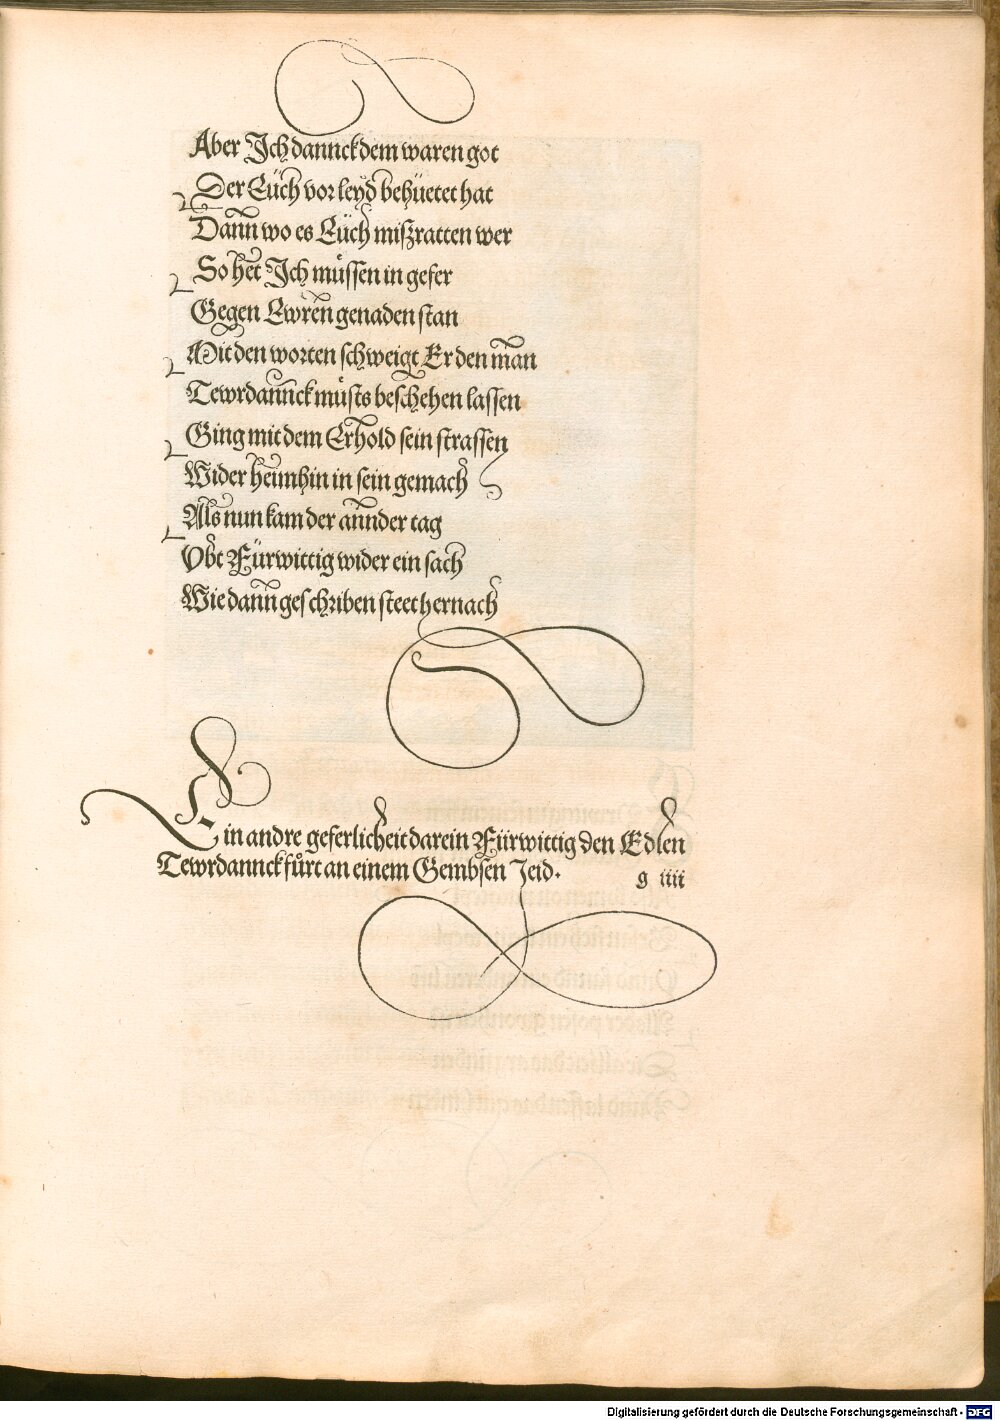 Aber Ich dannck dem waren got
Der Eüch vor leyd behüetet hat
Dann wo es Eüch miszratten wer
So het Ich müssen in gefer
Gegen Ewren genaden stan
Mit den worten schweigt Er den man
Tewrdannck müsts beschehen lassen
Ging mit dem Erhold sein strassen
Wider heimhin in sein gemach
Als nun kam der annder tag
Vbt Fürwittig wider ein sach
Wie dann geschriben steet hernach
Ein andre geferlicheit darein Fürwittig den Edlen
Tewrdannck fůrt an einem Gembsen Jeid.
g iiii
Digitalisierung gefördert durch die Deutsche Forschungsgemeinschaft - DFG